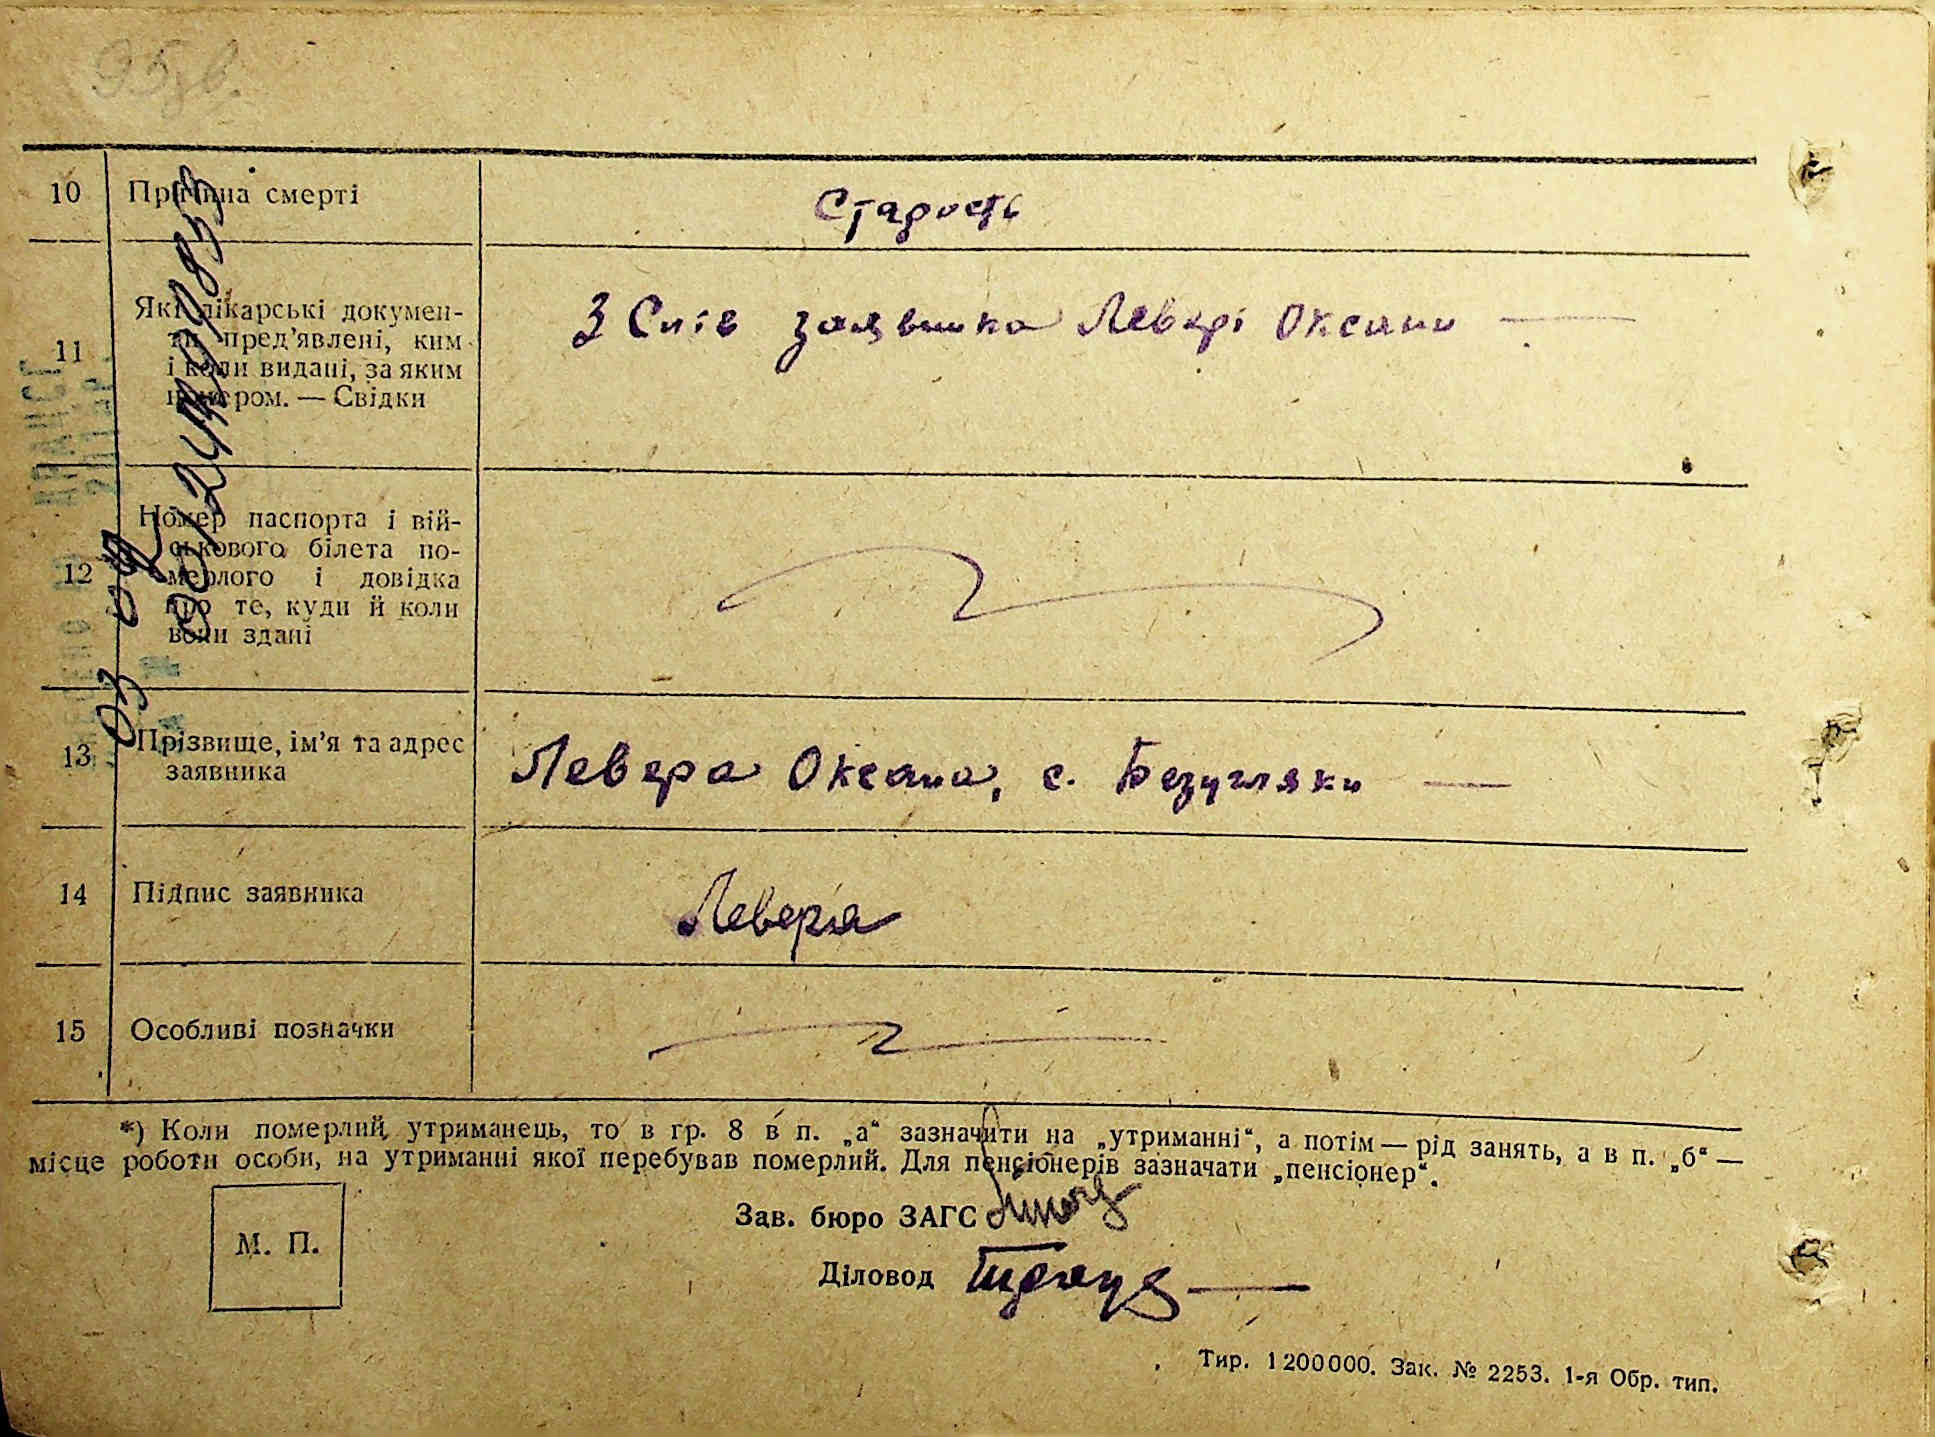 95зв.
10 Причина смерті Старость
11 Які лікарські докумен-
ти пред'явлені, ким
і коли видані, за яким
номером. — Свідки
З Слів заявника Левері Оксани —
12 Номер паспорта і вій-
ськового білета по-
мерлого і довідка
про те, куди й коли
вони здані
13 Прізвище, ім'я та адрес
заявника
Левера Оксана, с. Безугляки —
14 Підпис заявника Левера
15 Особливі позначки
*) Коли померлий, утриманець, то в гр. 8 в п. „а“ зазначити на „утриманні“, а потім — рід занять, а в п. „б“ —
місце роботи особи, на утриманні якої перебував померлий. Для пенсіонерів зазначати „пенсіонер“.
Зав. бюро ЗАГС
М. П.
Діловод
Тир. 1200000. Зак. № 2253. 1-я Обр. тип.